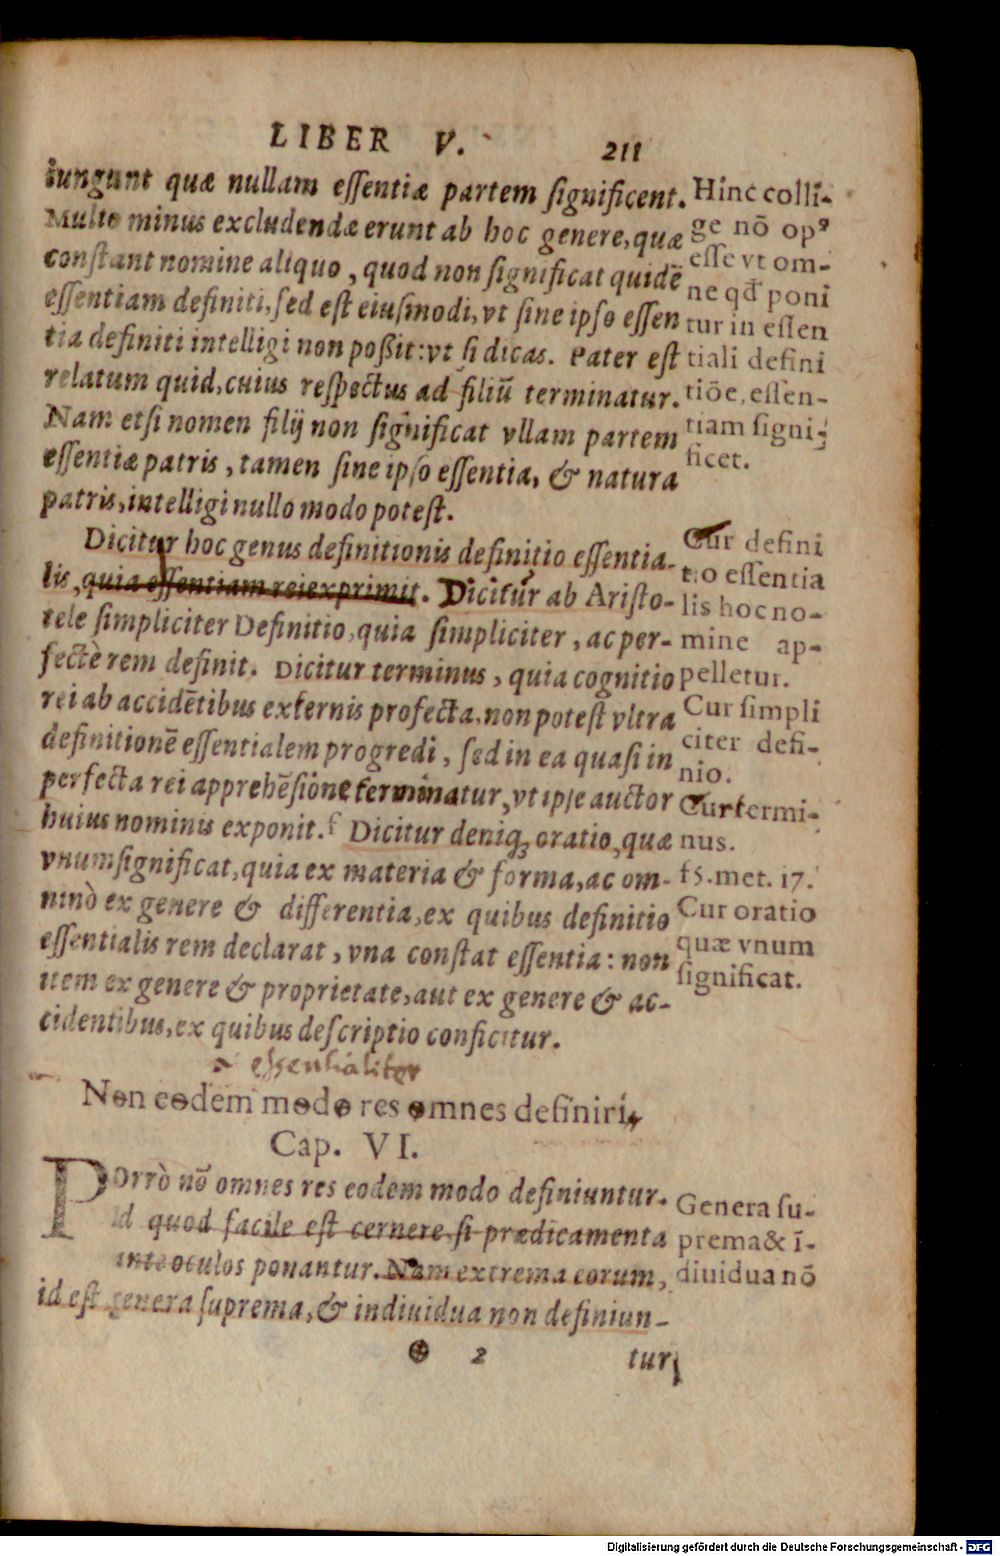 LIBER V. 211
iungunt quæ nullam essentiæ partem significent.
Multo minus excludendæ erunt ab hoc genere, quæ
constant nomine aliquo, quod non significat quidē
essentiam definiti, sed est eiusmodi, vt sine ipso essen
tia definiti intelligi non poßit: vt si dicas. Pater est
relatum quid, cuius respectus ad filiū terminatur.
Nam etsi nomen filij non significat vllam partem
essentiæ patris, tamen sine ipso essentia, & natura
patris, intelligi nullo modo potest.
Hinc colli-
ge nō opꝰ
esse vt om-
ne qđ poni
tur in essen
tiali defini
tiōe, essen-
tiam signi-
ficet.
Dicitur hoc genus definitionis definitio essentia-
lis, quia essentiam rei exprimit. Dicitur ab Aristo-
tele simpliciter Definitio, quia simpliciter, ac per-
fectè rem definit. Dicitur terminus, quia cognitio
rei ab accidētibus externis profecta, non potest vltra
definitionē essentialem progredi, sed in ea quasi in
perfecta rei apprehēsione terminatur, vt ipse auctor
huius nominis exponit. f Dicitur deniq; oratio, quæ
vnum significat, quia ex materia & forma, ac om-
ninò ex genere & differentia, ex quibus definitio
essentialis rem declarat, vna constat essentia: non
item ex genere & proprietate, aut ex genere & ac-
cidentibus, ex quibus descriptio conficitur.
Cur defini
tio essentia
lis hoc no-
mine ap-
pelletur.
Cur simpli
citer defi-
nio.
Cur termi-
nus.
f 5. met. 17.
Cur oratio
quæ vnum
significat.
essentialiter
Non eodem modo res omnes definiri,
Cap. VI.
POrrò nō omnes res eodem modo definiuntur.
Id quod facile est cernere, si prædicamenta
ante oculos ponantur. Nam extrema eorum,
id est genera suprema, & indiuidua non definiun-
Genera su-
prema & ī-
diuidua nō
2 tur
Digitalisierung gefördert durch die Deutsche Forschungsgemeinschaft - DFG